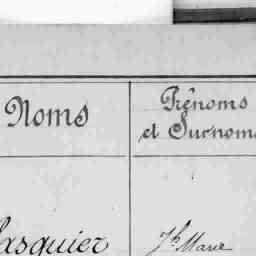 Noms
Prénoms
et Surnoms
asquier Jh Marie